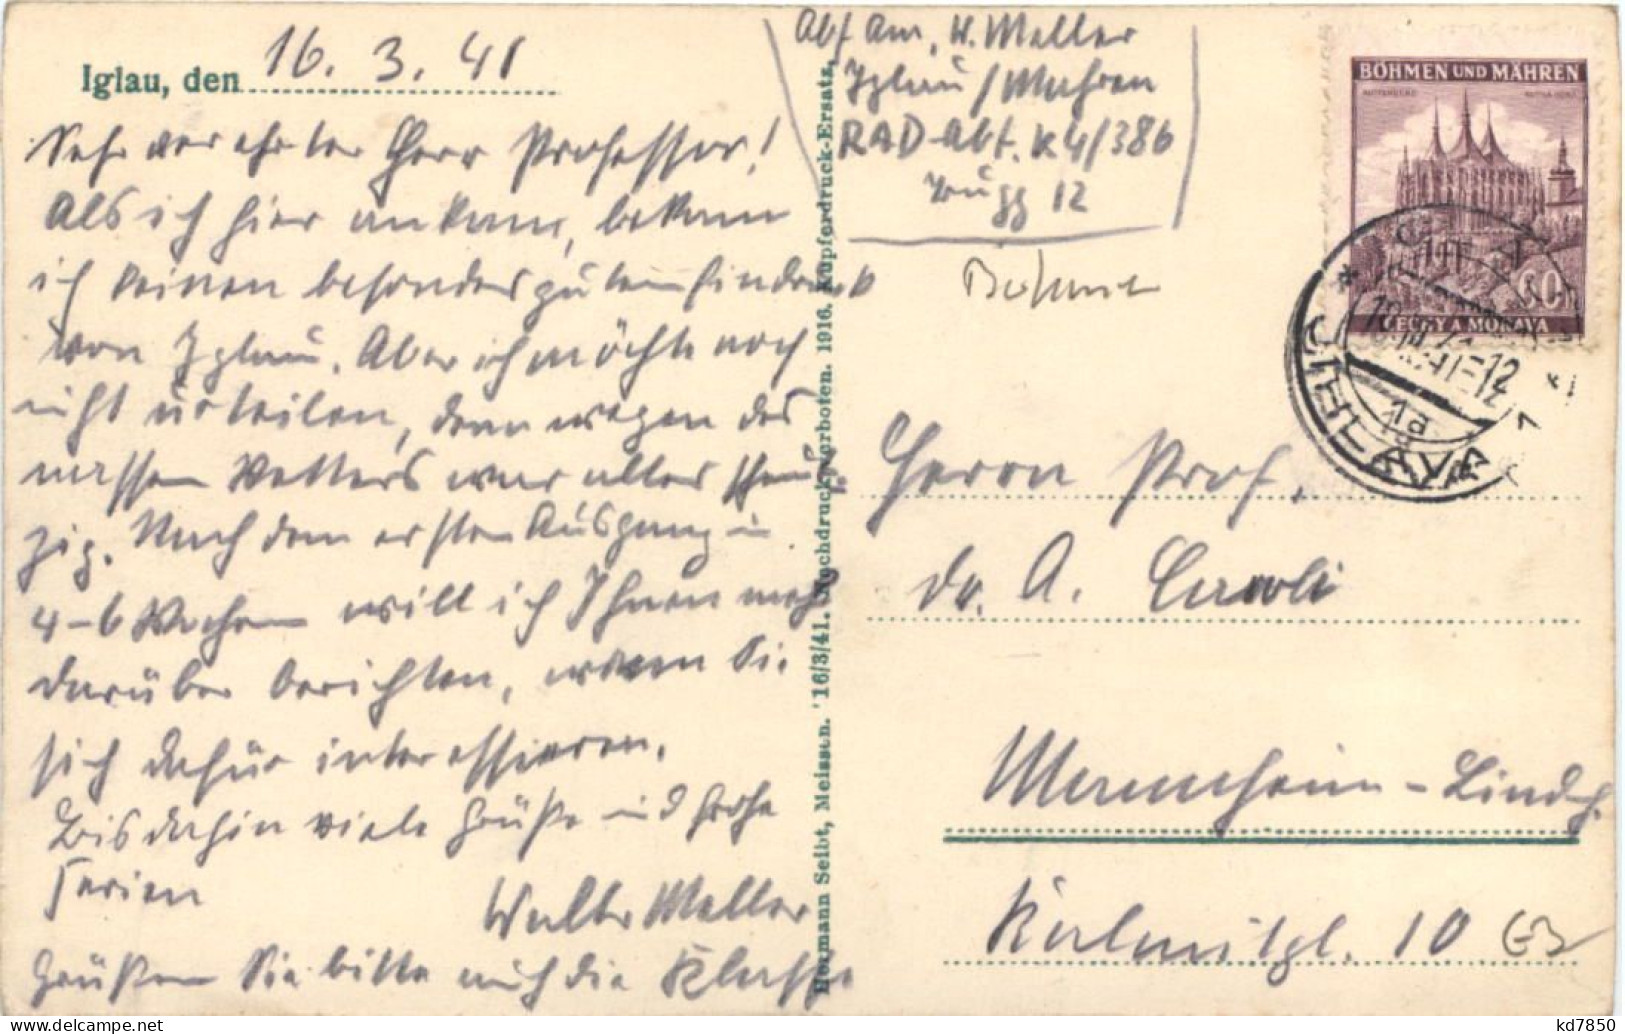 Iglau, den 16. 3. 41
Sehr verehrter Herr Professor!
Als ich hier ankam, bekam
ich keinen besonders guten Eindruck
von Iglau. Aber ich möchte noch
nicht urteilen, denn wegen des
nassen Wetters war alles schmut-
zig. Nach dem ersten Ausgang in
4-6 Wochen will ich Ihnen mehr
darüber berichten, wenn Sie
sich dafür interessieren.
Bis dahin viele Grüße und frohe
Ferien
Walter Meller
Grüßen Sie bitte auch die Klasse
Abs. Am. W. Meller
Iglau / Mähren
RAD-Abt. K4/386
Zugg 12
Böhmen
Hermann Seibt, Meissen. '16/3/41. Nachdruck verboten. 1916. Kupferdruck-Ersatz.
BÖHMEN UND MÄHREN
60
ČECHY A MORAVA
JIHLAVA
1a
Herrn Prof.
Dr. A. Caroli
Mannheim-Lindh.
Kalmitpl. 10
kd7850